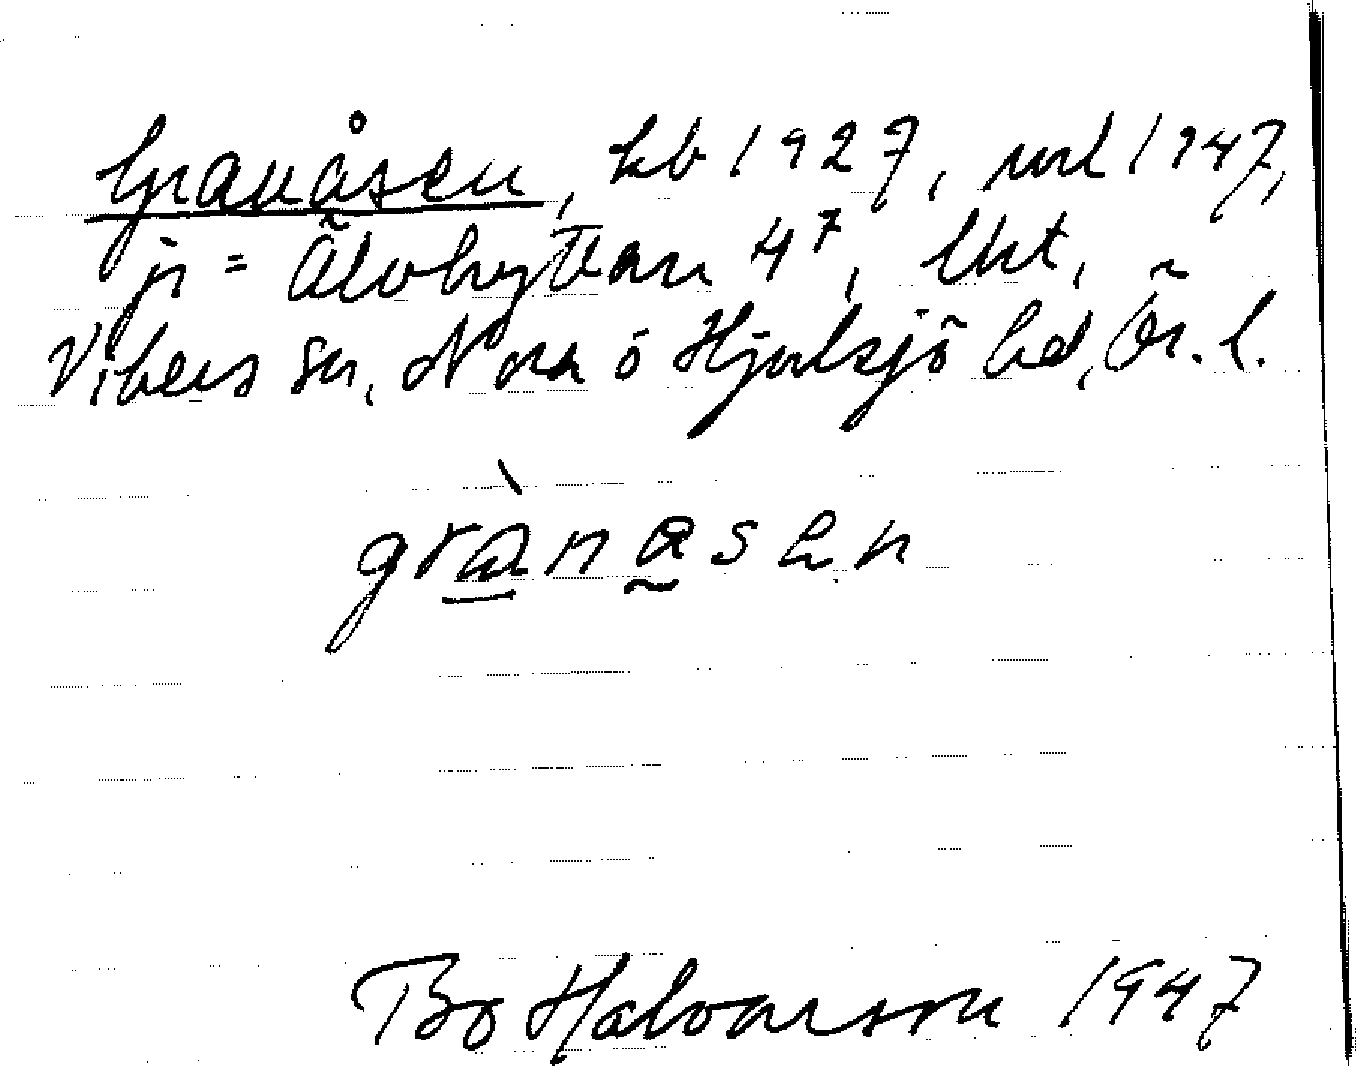 Granåsen, kb 1927, url 1947,
jr = Älvhyttan 4⁷, lht,
Vikers sn, Nora o Hjulsjö hd, Ör. l.
grànåsen
Bo Halvarson 1947